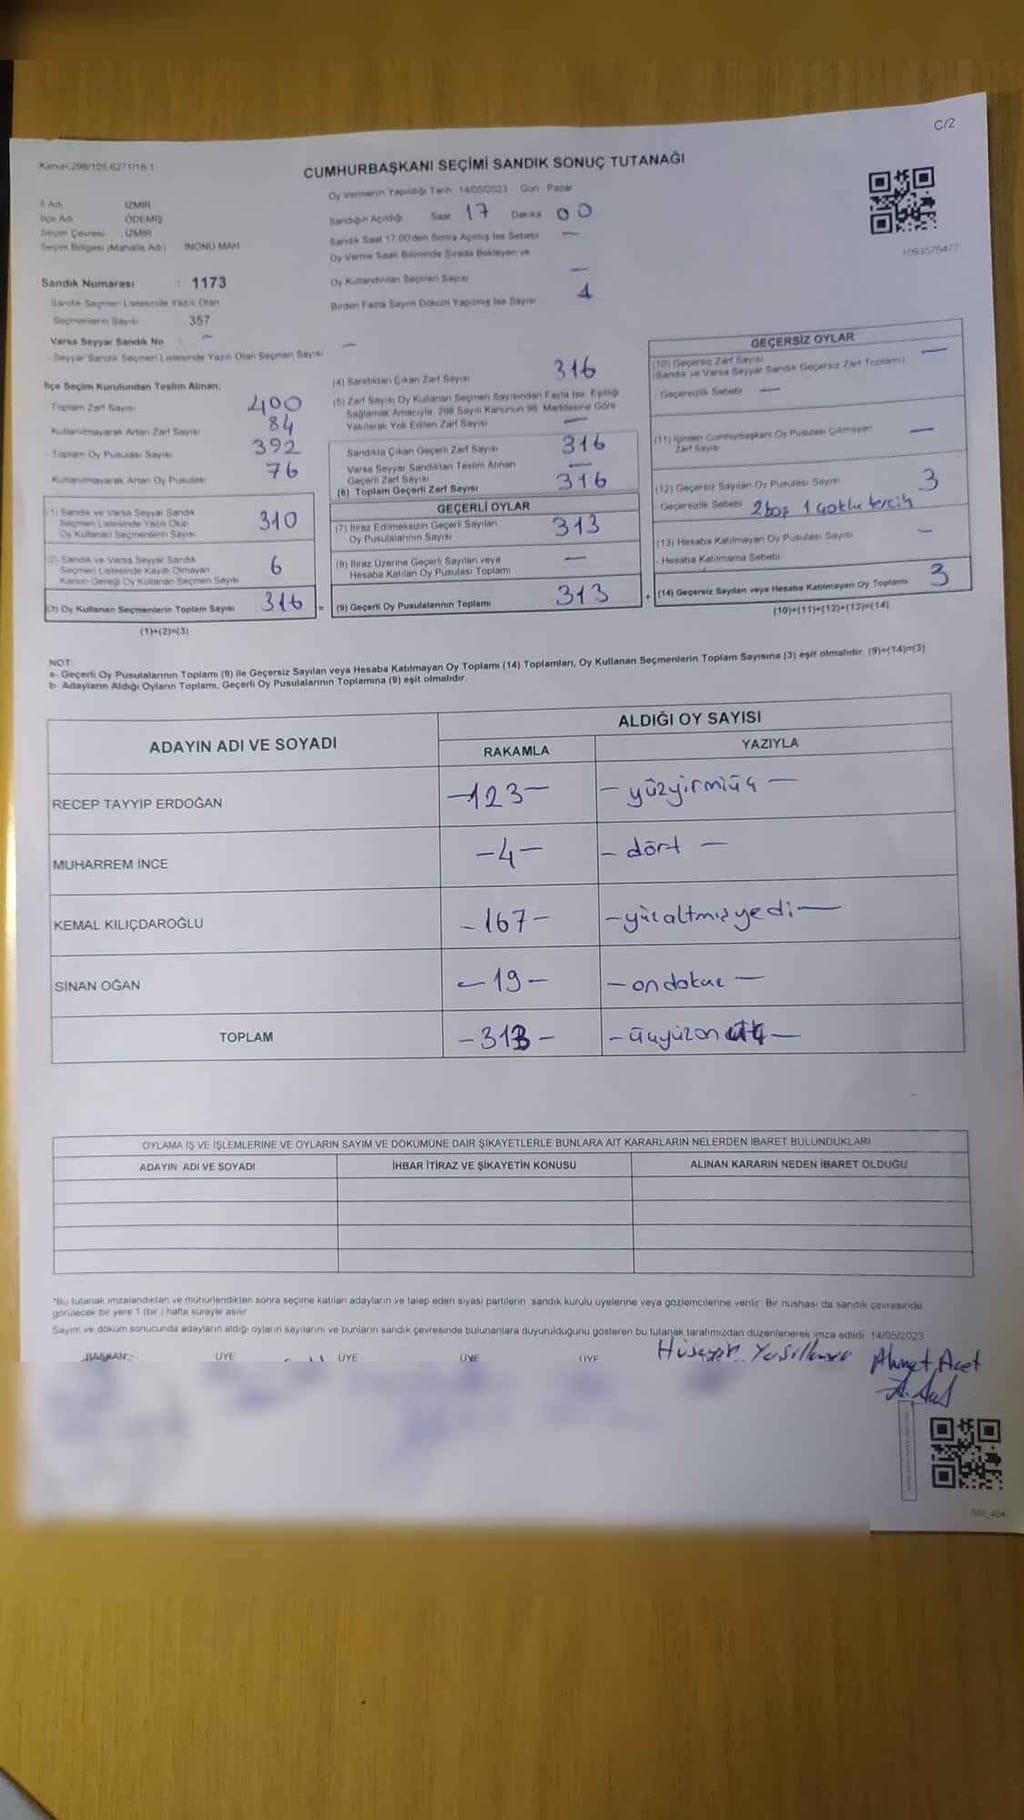 C/2
Kanun:298/105-6271/18-1
CUMHURBAŞKANI SEÇİMİ SANDIK SONUÇ TUTANAĞI
Oy Vermenin Yapıldığı Tarih 14/05/2023 Gün Pazar
İl Adı İZMİR
İlçe Adı ÖDEMİŞ
Seçim Çevresi İZMİR
Seçim Bölgesi (Mahalle Adı) İNÖNÜ MAH
Sandığın Açıldığı Saat 17 Dakika 00
Sandık Saat 17.00'den Sonra Açılmış İse Sebebi —
Oy Verme Saati Bitiminde Sırada Bekleyen ve
Oy Kullandırılan Seçmen Sayısı —
Birden Fazla Sayım Döküm Yapılmış İse Sayısı 1
1093576477
Sandık Numarası : 1173
Sandık Seçmen Listesinde Yazılı Olan
Seçmenlerin Sayısı 357
Varsa Seyyar Sandık No : —
Seyyar Sandık Seçmen Listesinde Yazılı Olan Seçmen Sayısı —
İlçe Seçim Kurulundan Teslim Alınan;
Toplam Zarf Sayısı 400
Kullanılmayarak Artan Zarf Sayısı 84
Toplam Oy Pusulası Sayısı 392
Kullanılmayarak Artan Oy Pusulası 76
(1) Sandık ve Varsa Seyyar Sandık
Seçmen Listesinde Yazılı Olup
Oy Kullanan Seçmenlerin Sayısı 310
(2) Sandık ve Varsa Seyyar Sandık
Seçmen Listesinde Kayıtlı Olmayan
Kanun Gereği Oy Kullanan Seçmen Sayısı 6
(3) Oy Kullanan Seçmenlerin Toplam Sayısı 316 =
(1)+(2)=(3)
(4) Sandıktan Çıkan Zarf Sayısı 316
(5) Zarf Sayısı Oy Kullanan Seçmen Sayısından Fazla İse, Eşitliği
Sağlamak Amacıyla, 298 Sayılı Kanunun 98. Maddesine Göre
Yakılarak Yok Edilen Zarf Sayısı —
Sandıkta Çıkan Geçerli Zarf Sayısı 316
Varsa Seyyar Sandıktan Teslim Alınan
Geçerli Zarf Sayısı —
(6) Toplam Geçerli Zarf Sayısı 316
GEÇERLİ OYLAR
(7) İtiraz Edilmeksizin Geçerli Sayılan
Oy Pusulalarının Sayısı 313
(8) İtiraz Üzerine Geçerli Sayılan veya
Hesaba Katılan Oy Pusulası Toplamı —
(9) Geçerli Oy Pusulalarının Toplamı 313 +
GEÇERSİZ OYLAR
(10) Geçersiz Zarf Sayısı
(Sandık ve Varsa Seyyar Sandık Geçersiz Zarf Toplamı) —
Geçersizlik Sebebi —
(11) İçinden Cumhurbaşkanı Oy Pusulası Çıkmayan
Zarf Sayısı —
(12) Geçersiz Sayılan Oy Pusulası Sayısı 3
Geçersizlik Sebebi 2 boş 1 çoklu tercih
(13) Hesaba Katılmayan Oy Pusulası Sayısı —
Hesaba Katılmama Sebebi
(14) Geçersiz Sayılan veya Hesaba Katılmayan Oy Toplamı 3
(10)+(11)+(12)+(13)=(14)
NOT:
a- Geçerli Oy Pusulalarının Toplamı (9) ile Geçersiz Sayılan veya Hesaba Katılmayan Oy Toplamı (14) Toplamları, Oy Kullanan Seçmenlerin Toplam Sayısına (3) eşit olmalıdır. (9)+(14)=(3)
b- Adayların Aldığı Oyların Toplamı, Geçerli Oy Pusulalarının Toplamına (9) eşit olmalıdır.
ADAYIN ADI VE SOYADI ALDIĞI OY SAYISI
RAKAMLA YAZIYLA
RECEP TAYYİP ERDOĞAN -123- -yüzyirmiüç-
MUHARREM İNCE -4- -dört-
KEMAL KILIÇDAROĞLU -167- -yüzaltmışyedi-
SİNAN OĞAN -19- -ondokuz-
TOPLAM -313- -üçyüzon
OYLAMA İŞ VE İŞLEMLERİNE VE OYLARIN SAYIM VE DÖKÜMÜNE DAİR ŞİKAYETLERLE BUNLARA AİT KARARLARIN NELERDEN İBARET BULUNDUKLARI
ADAYIN ADI VE SOYADI İHBAR İTİRAZ VE ŞİKAYETİN KONUSU ALINAN KARARIN NEDEN İBARET OLDUĞU
*Bu tutanak imzalandıktan ve mühürlendikten sonra seçime katılan adayların ve talep eden siyasi partilerin sandık kurulu üyelerine veya gözlemcilerine verilir. Bir nüshası da sandık çevresinde
görülecek bir yere 1 (bir) hafta süreyle asılır.
Sayım ve döküm sonucunda adayların aldığı oyların sayılarını ve bunların sandık çevresinde bulunanlara duyurulduğunu gösteren bu tutanak tarafımızdan düzenlenerek imza edildi. 14/05/2023
BAŞKAN ÜYE ÜYE ÜYE ÜYE
Ahmet Acet